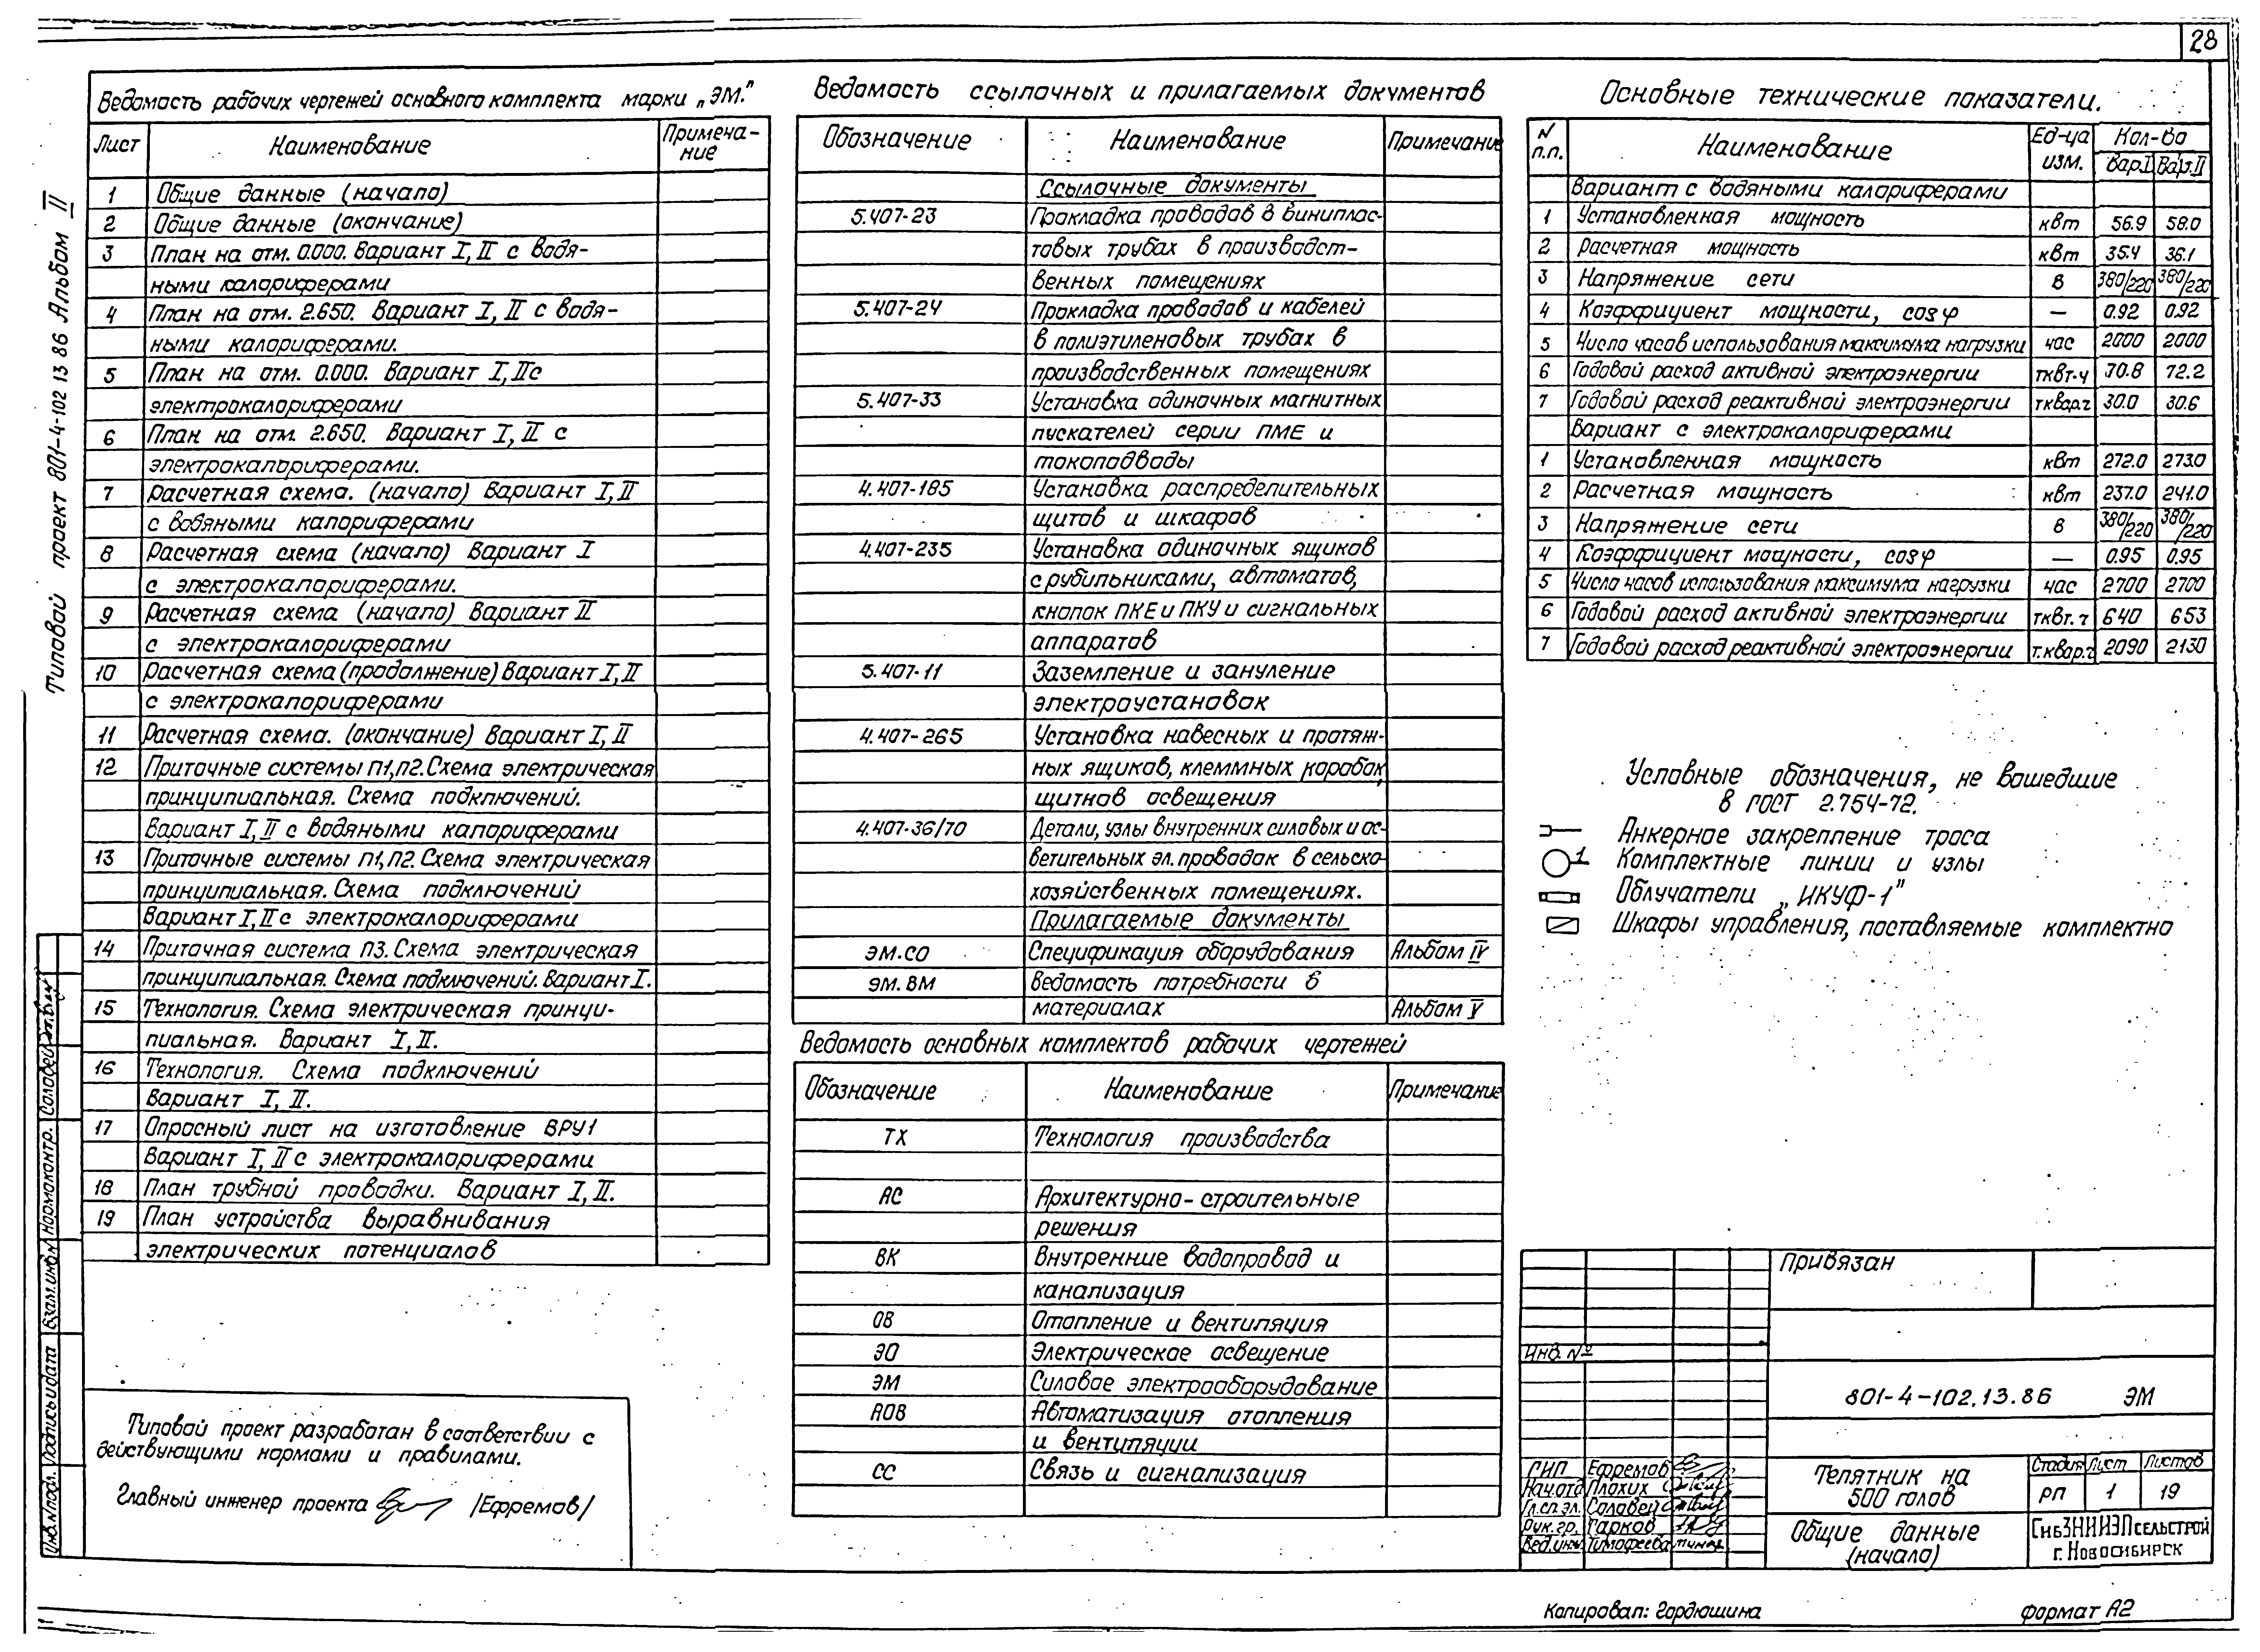 28
Типовой проект 801-4-102.13.86 Альбом II
Ведомость рабочих чертежей основного комплекта марки „ЭМ."
Лист Наименование Примеча-
ние
1 Общие данные (начало)
2 Общие данные (окончание)
3 План на отм. 0.000. Вариант I, II с водя-
ными калориферами
4 План на отм. 2.650. Вариант I, II с водя-
ными калориферами.
5 План на отм. 0.000. Вариант I, II с
электрокалориферами
6 План на отм. 2.650. Вариант I, II с
электрокалориферами.
7 Расчетная схема. (начало) Вариант I, II
с водяными калориферами
8 Расчетная схема (начало) Вариант I
с электрокалориферами.
9 Расчетная схема (начало) Вариант II
с электрокалориферами
10 Расчетная схема (продолжение) Вариант I, II
с электрокалориферами
11 Расчетная схема. (окончание) Вариант I, II
12 Приточные системы П1, П2. Схема электрическая
принципиальная. Схема подключений.
Вариант I, II с водяными калориферами
13 Приточные системы П1, П2. Схема электрическая
принципиальная. Схема подключений
Вариант I, II с электрокалориферами
14 Приточная система П3. Схема электрическая
принципиальная. Схема подключений. Вариант I.
15 Технология. Схема электрическая принци-
пиальная. Вариант I, II.
16 Технология. Схема подключений
Вариант I, II.
17 Опросный лист на изготовление ВРУ1
Вариант I, II с электрокалориферами
18 План трубной проводки. Вариант I, II.
19 План устройства выравнивания
электрических потенциалов
Типовой проект разработан в соответствии с
действующими нормами и правилами.
Главный инженер проекта /Ефремов/
Ведомость ссылочных и прилагаемых документов
Обозначение Наименование Примечание
Ссылочные документы
5.407-23 Прокладка проводов в виниплас-
товых трубах в производст-
венных помещениях
5.407-24 Прокладка проводов и кабелей
в полиэтиленовых трубах в
производственных помещениях
5.407-33 Установка одиночных магнитных
пускателей серии ПМЕ и
токоподводы
4.407-185 Установка распределительных
щитов и шкафов
4.407-235 Установка одиночных ящиков
с рубильниками, автоматов,
кнопок ПКЕ и ПКУ и сигнальных
аппаратов
5.407-11 Заземление и зануление
электроустановок
4.407-265 Установка навесных и протяж-
ных ящиков, клеммных коробок,
щитков освещения
4.407-36/70 Детали, узлы внутренних силовых и ос-
ветительных эл. проводок в сельско-
хозяйственных помещениях.
Прилагаемые документы
ЭМ.СО Спецификация оборудования Альбом IV
ЭМ.ВМ Ведомость потребности в
материалах Альбом V
Ведомость основных комплектов рабочих чертежей
Обозначение Наименование Примечание
ТХ Технология производства
АС Архитектурно-строительные
решения
ВК Внутренние водопровод и
канализация
ОВ Отопление и вентиляция
ЭО Электрическое освещение
ЭМ Силовое электрооборудование
АОВ Автоматизация отопления
и вентиляции
СС Связь и сигнализация
Основные технические показатели.
N п.п. Наименование Ед-ца изм. Кол-во
Вар.I Вар.II
Вариант с водяными калориферами
1 Установленная мощность квт 56.9 58.0
2 Расчетная мощность квт 35.4 36.1
3 Напряжение сети в 380/220 380/220
4 Коэффициент мощности, cos φ — 0.92 0.92
5 Число часов использования максимума нагрузки час 2000 2000
6 Годовой расход активной электроэнергии тквт.ч 70.8 72.2
7 Годовой расход реактивной электроэнергии тквар.ч 30.0 30.6
Вариант с электрокалориферами
1 Установленная мощность квт 272.0 273.0
2 Расчетная мощность квт 237.0 241.0
3 Напряжение сети в 380/220 380/220
4 Коэффициент мощности, cos φ — 0.95 0.95
5 Число часов использования максимума нагрузки час 2700 2700
6 Годовой расход активной электроэнергии тквт.ч 640 653
7 Годовой расход реактивной электроэнергии т.квар.ч 2090 2130
Условные обозначения, не вошедшие
в ГОСТ 2.754-72.
Анкерное закрепление троса
1 Комплектные линии и узлы
Облучатели „ИКУФ-1"
Шкафы управления, поставляемые комплектно
Привязан
Инв. №
801-4-102.13.86 ЭМ
ГИП Ефремов
Нач.отд Плохих
Гл.сп.эл. Соловей
Рук.гр. Гарков
Вед.инж. Тимофеева
Телятник на
500 голов
Стадия Лист Листов
РП 1 19
Общие данные
(начало)
СибЗНИИЭПсельстрой
г. Новосибирск
Инв.№подл. Подпись и дата Взам.инв.№ Нормоконтр. Соловей
Копировал: Гордюшина Формат А2